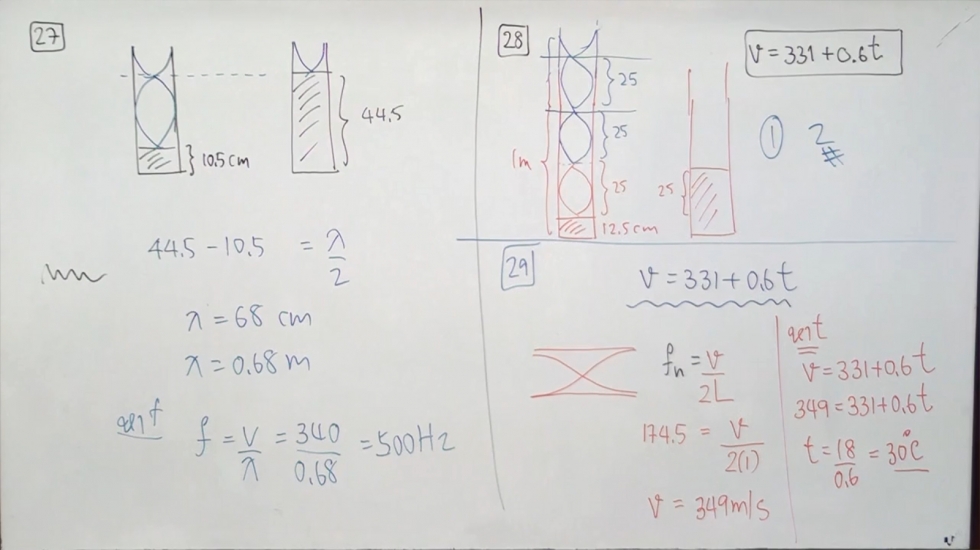 27
44.5
10.5cm
44.5 - 10.5 = λ/2
λ = 68 cm
λ = 0.68 m
หา f
f = v/λ = 340/0.68 = 500Hz
28
v = 331 + 0.6t
25
25
1m
25
12.5cm
25
① 2
#
29
v = 331 + 0.6t
fn = v/2L
174.5 = v/2(1)
v = 349m/s
หา t
v = 331 + 0.6t
349 = 331 + 0.6t
t = 18/0.6 = 30°C